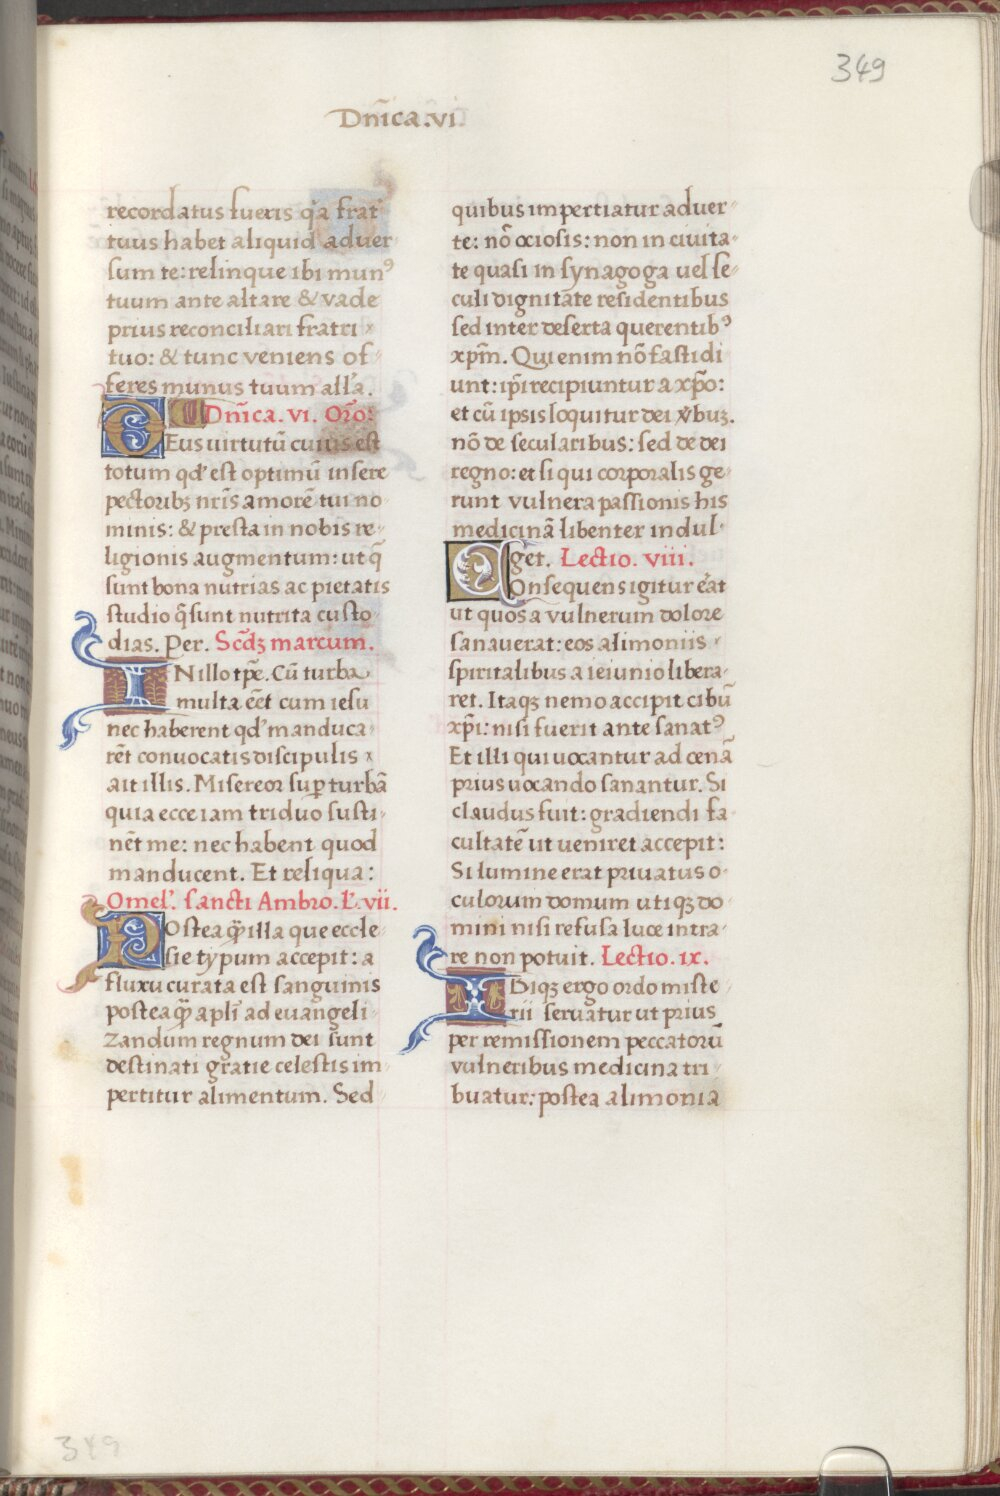 349
Dn̄ica.vi.
recordatus fueris q'a frat'
tuus habet aliquid aduer
sum te: relinque ibi munꝰ
tuum ante altare & vade
prius reconciliari fratri
tuo: & tunc veniens of
feres munus tuum all'a.
Dn̄ica. vi. Or̄o:
DEus uirtutū cuius est
totum qđ est optimū insere
pectoribꝫ nr̄is amorē tui no
minis: & presta in nobis re
ligionis augmentum: ut q̄
sunt bona nutrias ac pietatis
studio q̄ sunt nutrita custo
dias. Per. Scđꝫ marcum.
INillo tp̄e. Cū turba
multa eēt cum iesu
nec haberent qđ manduca
rēt conuocatis discipulis
ait illis. Misereor suꝑ turbā
quia ecce iam triduo susti
nēt me: nec habent quod
manducent. Et reliqua:
Omel'. sancti Ambro. L'. vii.
POstea q̄ꝫ illa que eccle
sie typum accepit: a
fluxu curata est sanguinis
postea q̄ꝫ apl'i ad euangeli
zandum regnum dei sunt
destinati gratie celestis im
pertitur alimentum. Sed
quibus impertiatur aduer
te: nō ociosis: non in ciuita
te quasi in synagoga uel se
culi dignitate residentibus
sed inter deserta querentibꝰ
xp̄m. Qui enim nō fastidi
unt: ip̄i recipiuntur a xp̄o:
et cū ipsis loquitur dei v̄buꝫ.
nō de secularibus: sed de dei
regno: et si qui corporalis ge
runt vulnera passionis his
medicinā libenter indul
get. Lectio. viii.
COnsequens igitur er̄at
ut quos a vulnerum dolore
sanauerat: eos alimoniis
spiritalibus a ieiunio libera
ret. Itaqꝫ nemo accipit cibū
xp̄i: nisi fuerit ante sanatꝰ
Et illi qui uocantur ad cenā
prius uocando sanantur. Si
claudus fuit: gradiendi fa
cultatē ut veniret accepit:
Si lumine erat priuatus o
culorum domum utiqꝫ do
mini nisi refusa luce intra
re non potuit. Lectio. ix.
IBiqꝫ ergo ordo miste
rii seruatur ut prius
per remissionem peccatorū
vulneribus medicina tri
buatur: postea alimonia
349